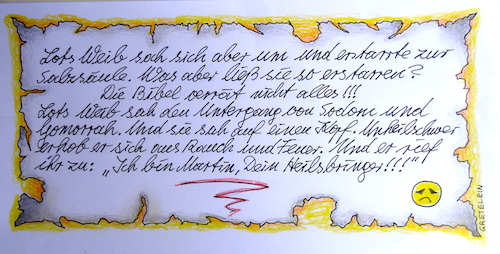 Lots Weib sah sich aber um und erstarrte zur
Salzsäule. Was aber ließ sie so erstarren?
Die Bibel verrät nicht alles!!!
Lots Weib sah den Untergang von Sodom und
Gomorrah. Und sie sah auf einen Kopf. Unheilschwer
erhob er sich aus Rauch und Feuer. Und er rief
ihr zu: „Ich bin Martin, Dein Heilsbringer!!!"
GRETELEIN